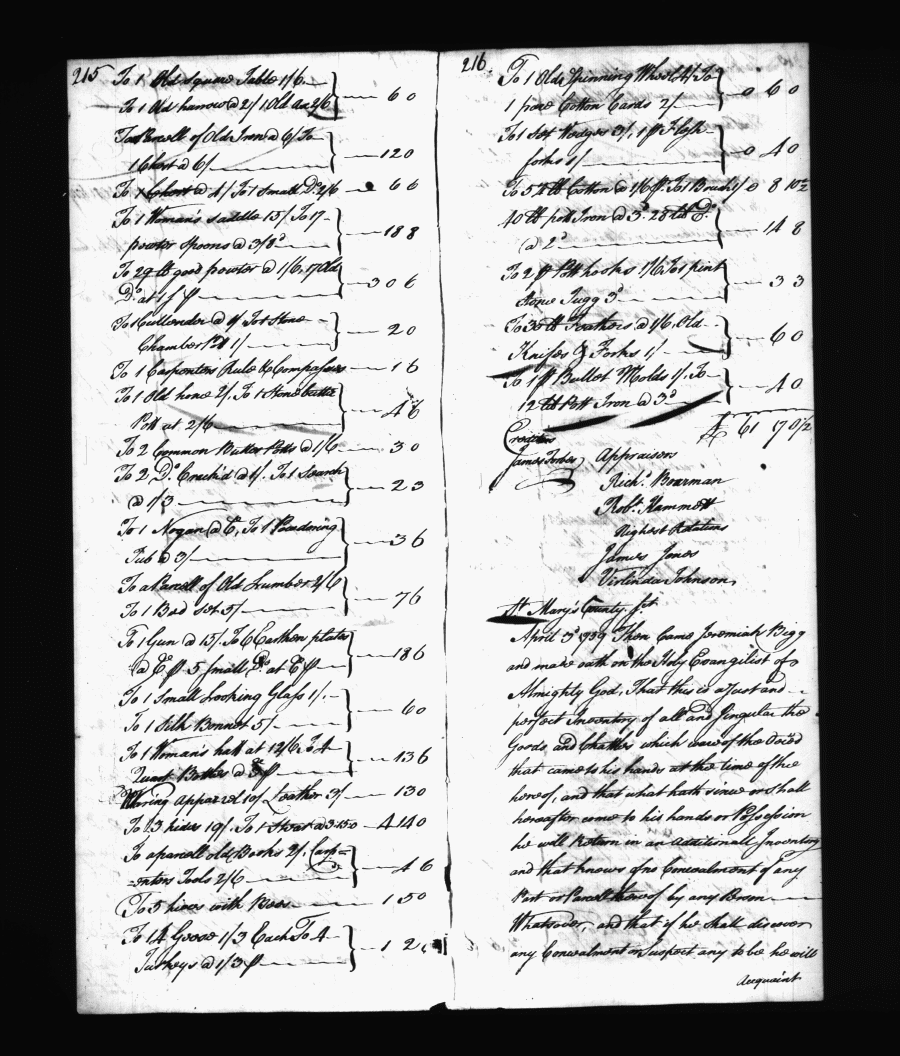 215
To 1 Old square Table 1/6
To 1 Old harrow @ 2/ 1 Old Ax 2/6 — 6 0
To a Parcell of Old Iron @ 6/ To
1 Chest @ 6/ — 12 0
To 1 Chest @ 4/ To 1 Small Do 2/6 — 6 6
To 1 Woman's saddle 15/ To 17
pewter Spoons @ 3/8d — 18 8
To 29 lb good pewter @ 1/6, 17 Old
Do at 1/ p — 3 0 6
To 1 Cullender @ 1/ To 1 Stone
Chamber Pott 1/ — 2 0
To 1 Carpenters Rule & Compasses — 1 6
To 1 Old hone 2/, To 1 Stone butter
Pott at 2/6 — 4 6
To 2 Common Butter Potts @ 1/6 — 3 0
To 2 Do Crack'd @ 1/. To 1 Search
@ 1/3 — 2 3
To 1 Nogan @ 6, To 1 Powdering
Tub @ 3/ — 3 6
To a Parcell of Old Lumber 2/6
To 1 Bed set 5/ — 7 6
To 1 Gun @ 15/. To 6 Earthen plates
@ 6 p 5 Small Do at 6 p — 18 6
To 1 Small Looking Glass 1/.
To 1 Silk Bonnet 5/ — 6 0
To 1 Woman's hatt at 12/6 To 4
Quart Bottles @ 3 p — 13 6
Waring Apparel 10/ Leather 3/ — 13 0
To 3 hides 19/. To 1 Steer @ 3 15 0 — 4 14 0
To a parcell old Books 2/. Carp=
=enters Tools 2/6 — 4 6
To 5 hives with Bees — 1 5 0
To 14 Geese 1/3 Each To 4
Turkeys @ 1/3 p — 1 2
216
To 1 Old Spinning Wheel 4/ To
1 pare Cotton Cards 2/ — 0 6 0
To 1 Set Wedges 3/, 1 p Flesh
forks 1/ — 0 4 0
To 5 lb Cotton @ 1/6 p. To 1 Brush 1/ 0 8 10½
40 lb pott Iron @ 3d 28 lb Do
@ 2d — 14 8
To 2 p Pott hooks 1/6 To 1 pint
Stone Jugg 3d — 3 3
To 30 lb Feathers @ 1/6, Old
Knifes & Forks 1/ — 6 0
To 1 p Bullet Molds 1/. To
12 lb Pott Iron @ 3d — 4 0
£ 61 17 0½
Creditor
James Forbes Appraisers
Rich. Bearman
Robt. Hammett
Highest Relations
James Jones
Virlinda Johnson
St Mary's County Sst
April 3d 1739 Then Came Jeremiah Bigg
and made oath on the Holy Evangilist of
Almighty God, That this is a Just and
perfect Inventory of all and Singular the
Goods and Chattles which were of the Decd
that came to his hands at the time of the
hereof, and that what hath since or shall
hereafter come to his hands or Possession
he will Return in an Additionall Inventory
and that knows of no Concealment of any
Part or Parcel thereof by any Person
Whatsoever, and that if he shall discover
any Concealment or Suspect any to be he will
Acquaint